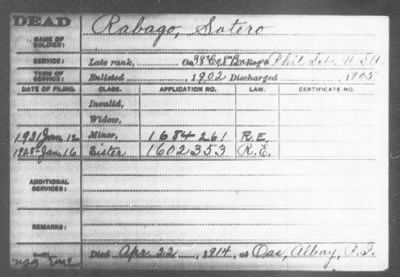 DEAD
NAME OF SOLDIER: Rabago, Sotero
SERVICE: Late rank, Co. 38 Reg't Phil. Scts. U.S.A.
TERM OF SERVICE: Enlisted 1902 Discharged 1905
DATE OF FILING. CLASS. APPLICATION NO. LAW. CERTIFICATE NO.
Invalid,
Widow,
1931 Jan. 12 Minor, 1684261 R.E.
1928-Jan. 16 Sister 1602353 R.E.
ADDITIONAL SERVICES:
REMARKS:
Died Apr. 22, 1914, at Oas, Albay, P.I.